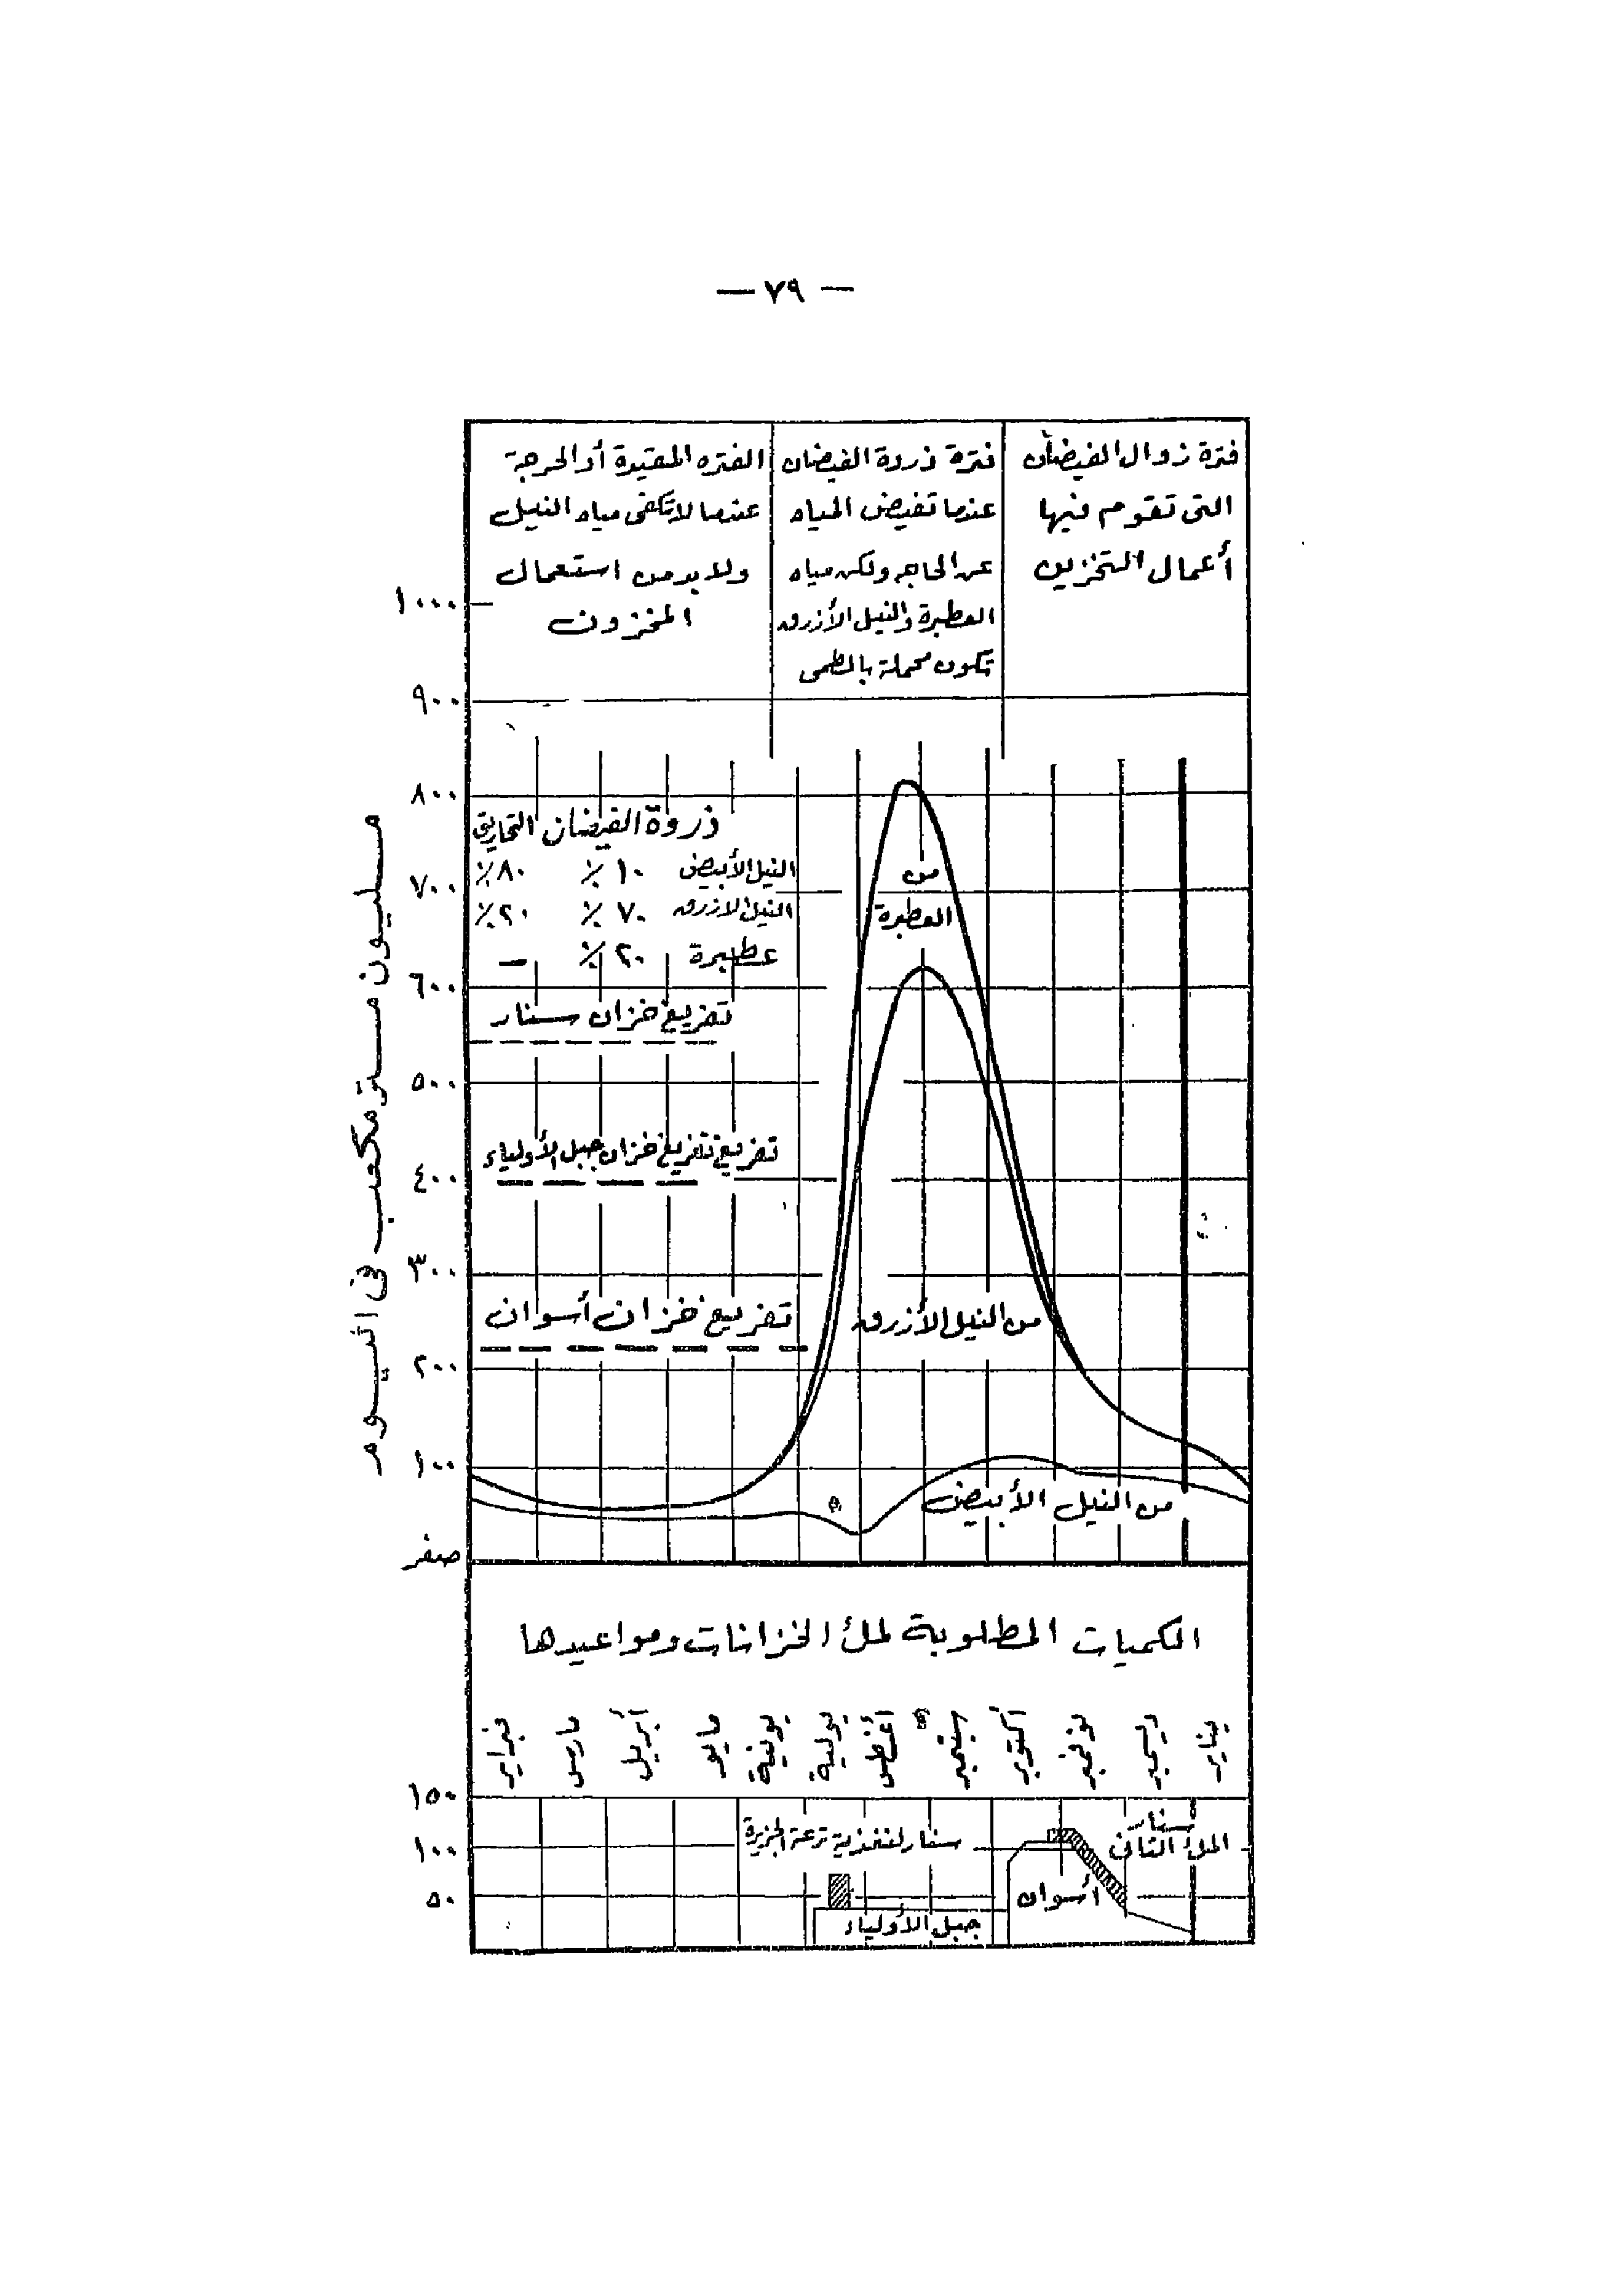 — ٧٩ —
فترة زوال الفيضان
التى تقوم فيها
أعمال التخزين
فترة ذروة الفيضان
عندما تفيض المياه
عن الحاجه ولكن مياه
العطبرة والنيل الأزرق
تكون محملة بالطمى
الفتره المقيدة أو الحرجة
عندما لا تكفى مياه النيل
ولابد من استعمال
المخزون
مليون متر مكعب فى اليوم
١٠٠٠
٩٠٠
٨٠٠
٧٠٠
٦٠٠
٥٠٠
٤٠٠
٣٠٠
٢٠٠
١٠٠
صفر
ذروة الفيضان التحاريق
النيل الأبيض ١٠ ٪ ٨٠ ٪
النيل الازرق ٧٠ ٪ ٢٠ ٪
عطبرة ٢٠ ٪ —
تفريغ خزان سنار
تفريغ تفريغ خزان جبل الأولياء
تفريغ خزان أسوان
من
العطبرة
من النيل الأزرق
من النيل الأبيض
الكميات المطلوبة لملأ الخزانات ومواعيدها
فبراير
مارس
أبريل
مايو
يونية
يولية
أغطس
سبتمبر
أكتوبر
نوفمبر
ديسمبر
يناير
١٥٠
١٠٠
٥٠
سنار لتغذية ترعة الجزيرة
جبل الأولياء
أسوان
سنار
الملأ الثانى